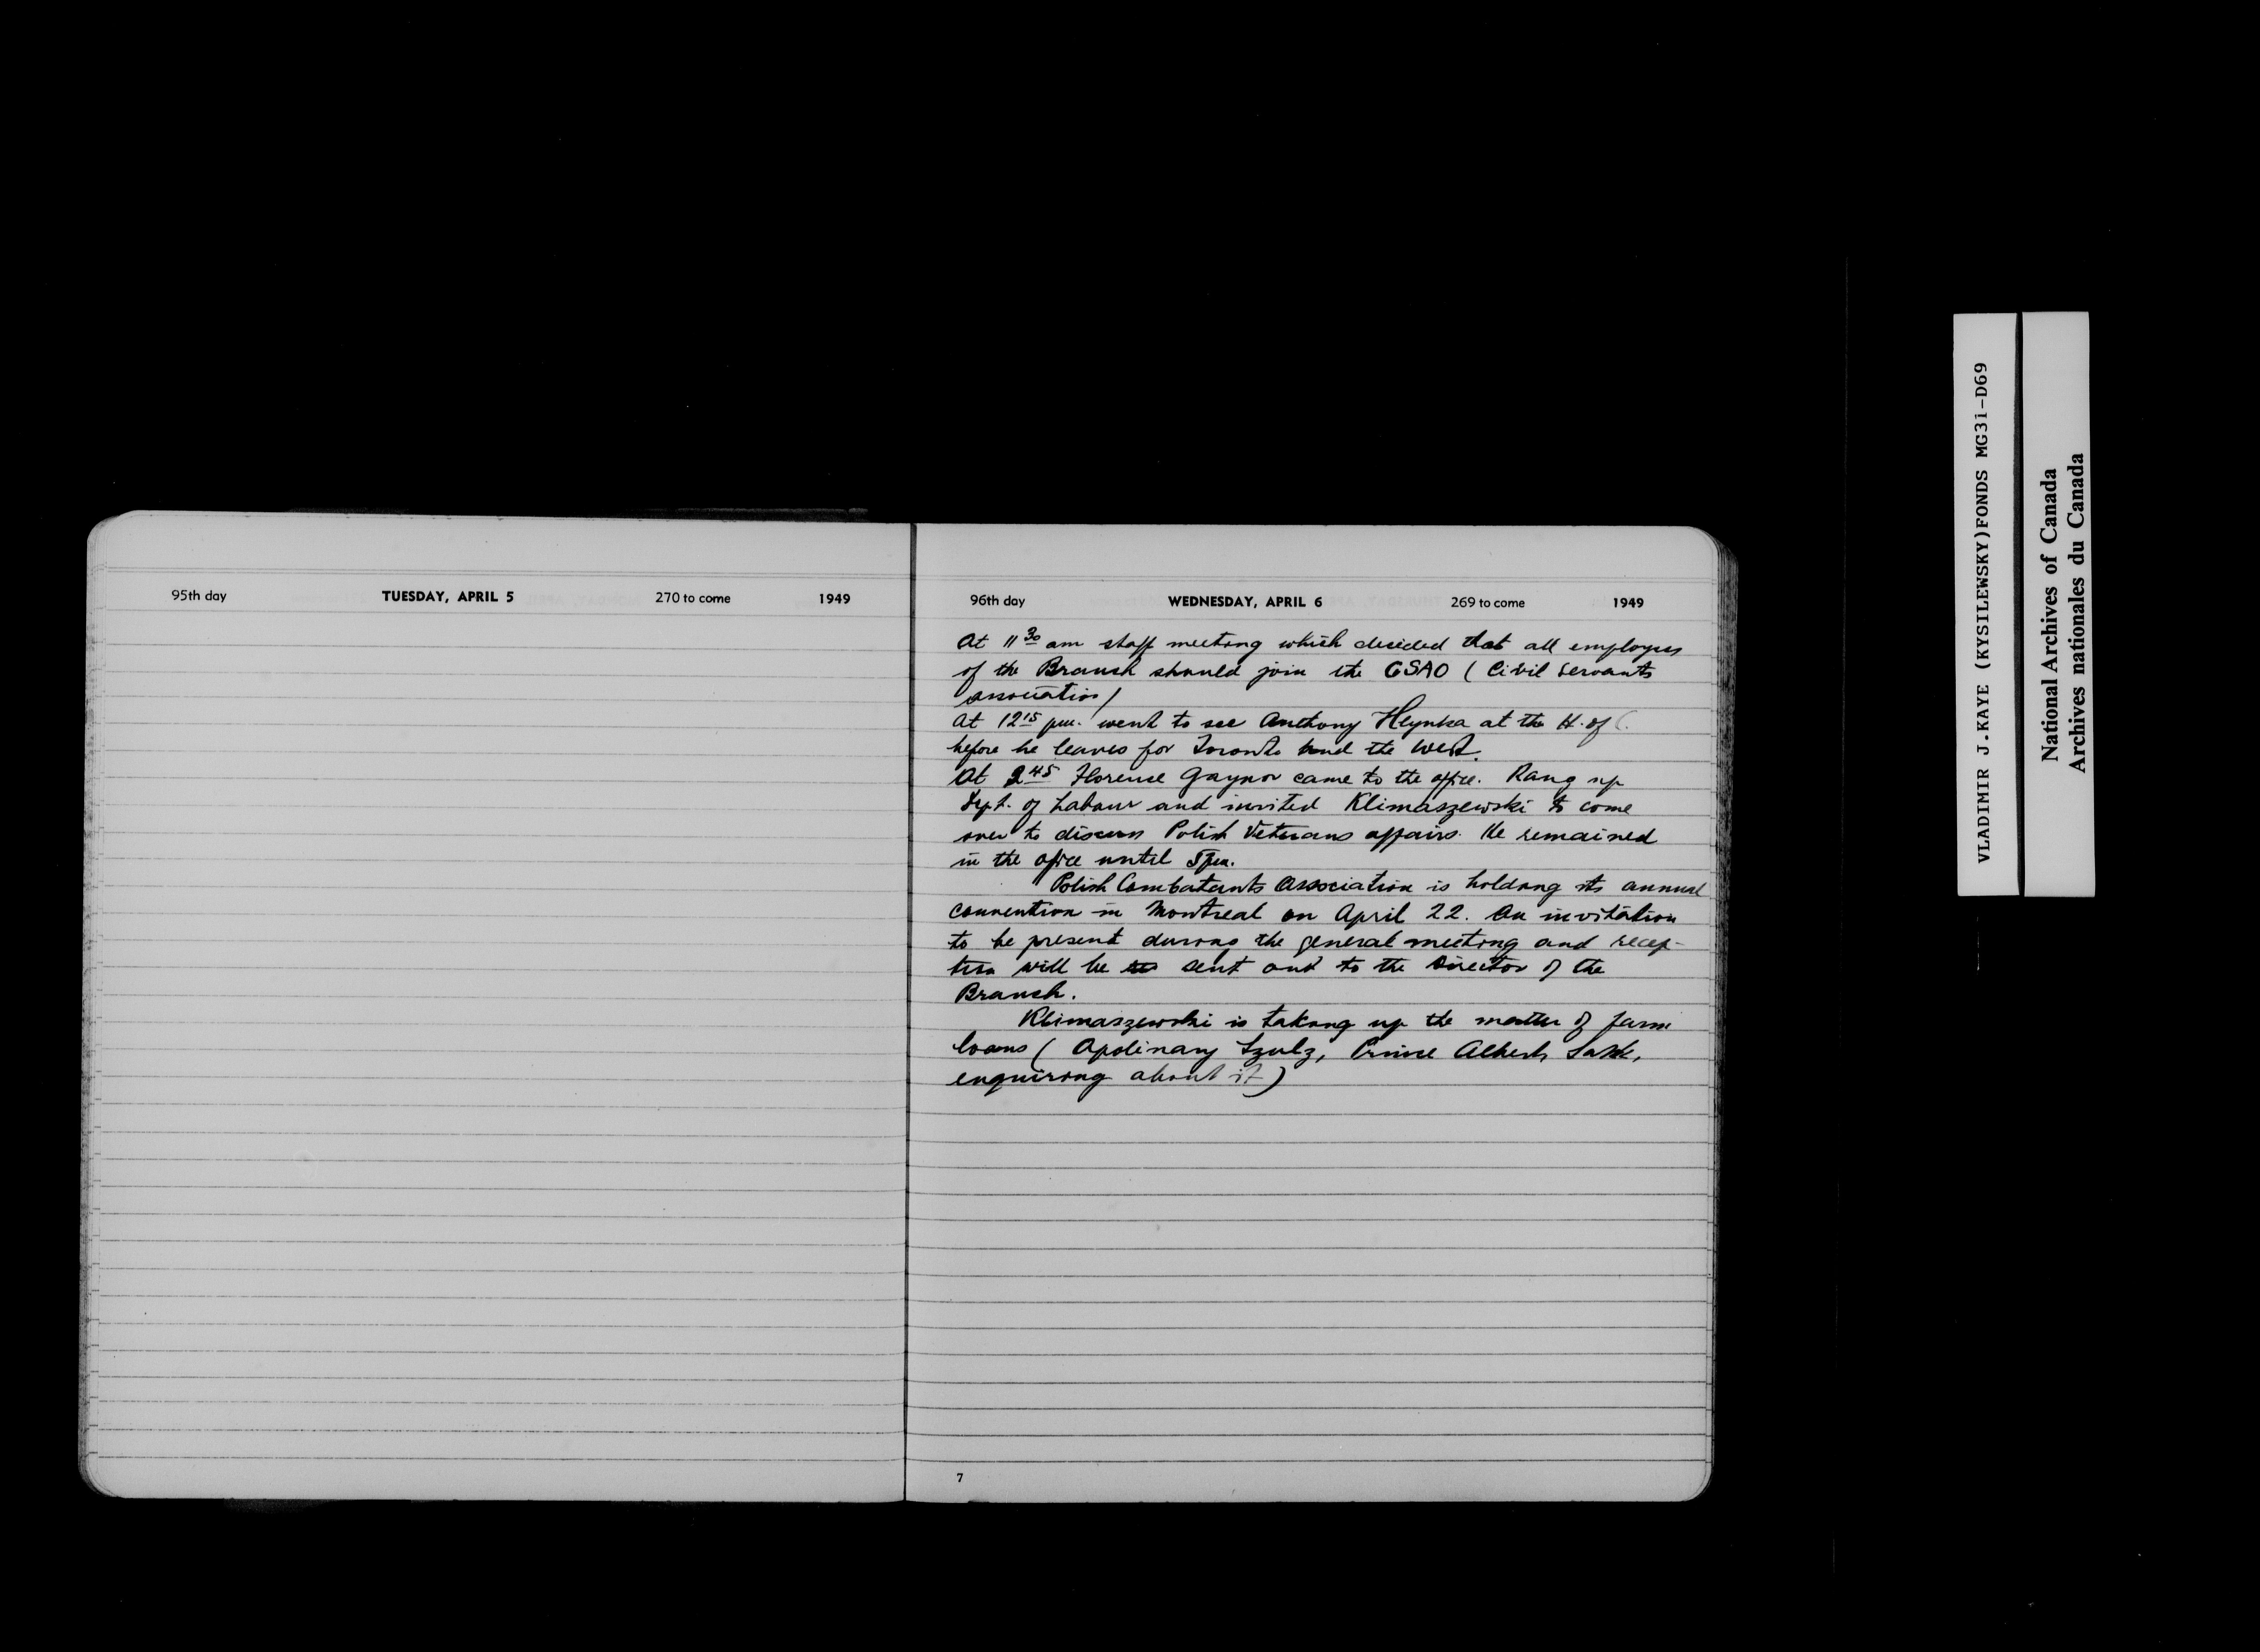 95th day TUESDAY, APRIL 5 270 to come 1949
96th day WEDNESDAY, APRIL 6 269 to come 1949
At 11 30 am staff meeting which decided that all employees
of the Branch should join the CSAO (Civil Servants
association)
At 12 15 pm. went to see Anthony Hlynka at the H. of C.
before he leaves for Toronto and the West.
At 2 45 Florence Gaynor came to the office. Rang up
Dept. of Labour and invited Klimaszewski to come
over to discuss Polish Veterans affairs. He remained
in the office until 5 pm.
Polish Combatants Association is holding its annual
convention in Montreal on April 22. An invitation
to be present during the general meeting and recep-
tion will be sent out to the Director of the
Branch.
Klimaszewski is taking up the matter of farm
loans (Apolinary Szulz, Prince Albert, Sask,
enquiring about it)
7
VLADIMIR J.KAYE (KYSILEWSKY)FONDS MG31-D69
National Archives of Canada
Archives nationales du Canada